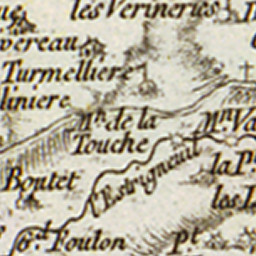 les Verineries
vereau
Turmelliere
liniere
Mⁿ de la
Touche
Mⁿ Va
la P
Boutet
l'Estrigneuil
les
Foulon
Pt